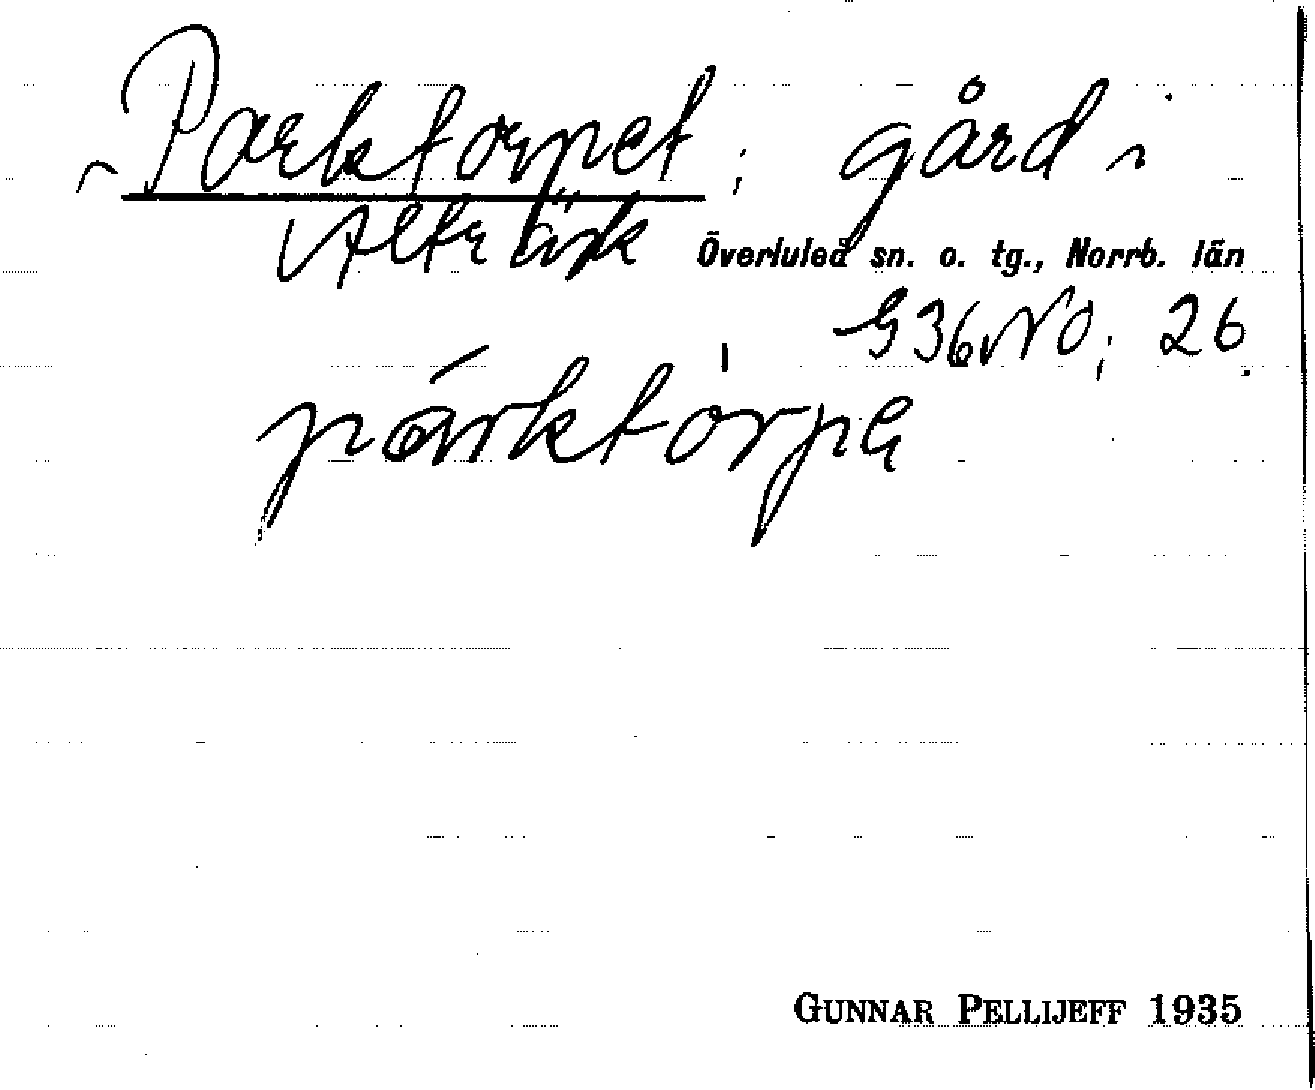 Parktorpet; gård i
Alterträsk Överluleå sn. o. tg., Norrb. län
G36NO; 26.
párktòrpe
GUNNAR PELLIJEFF 1935